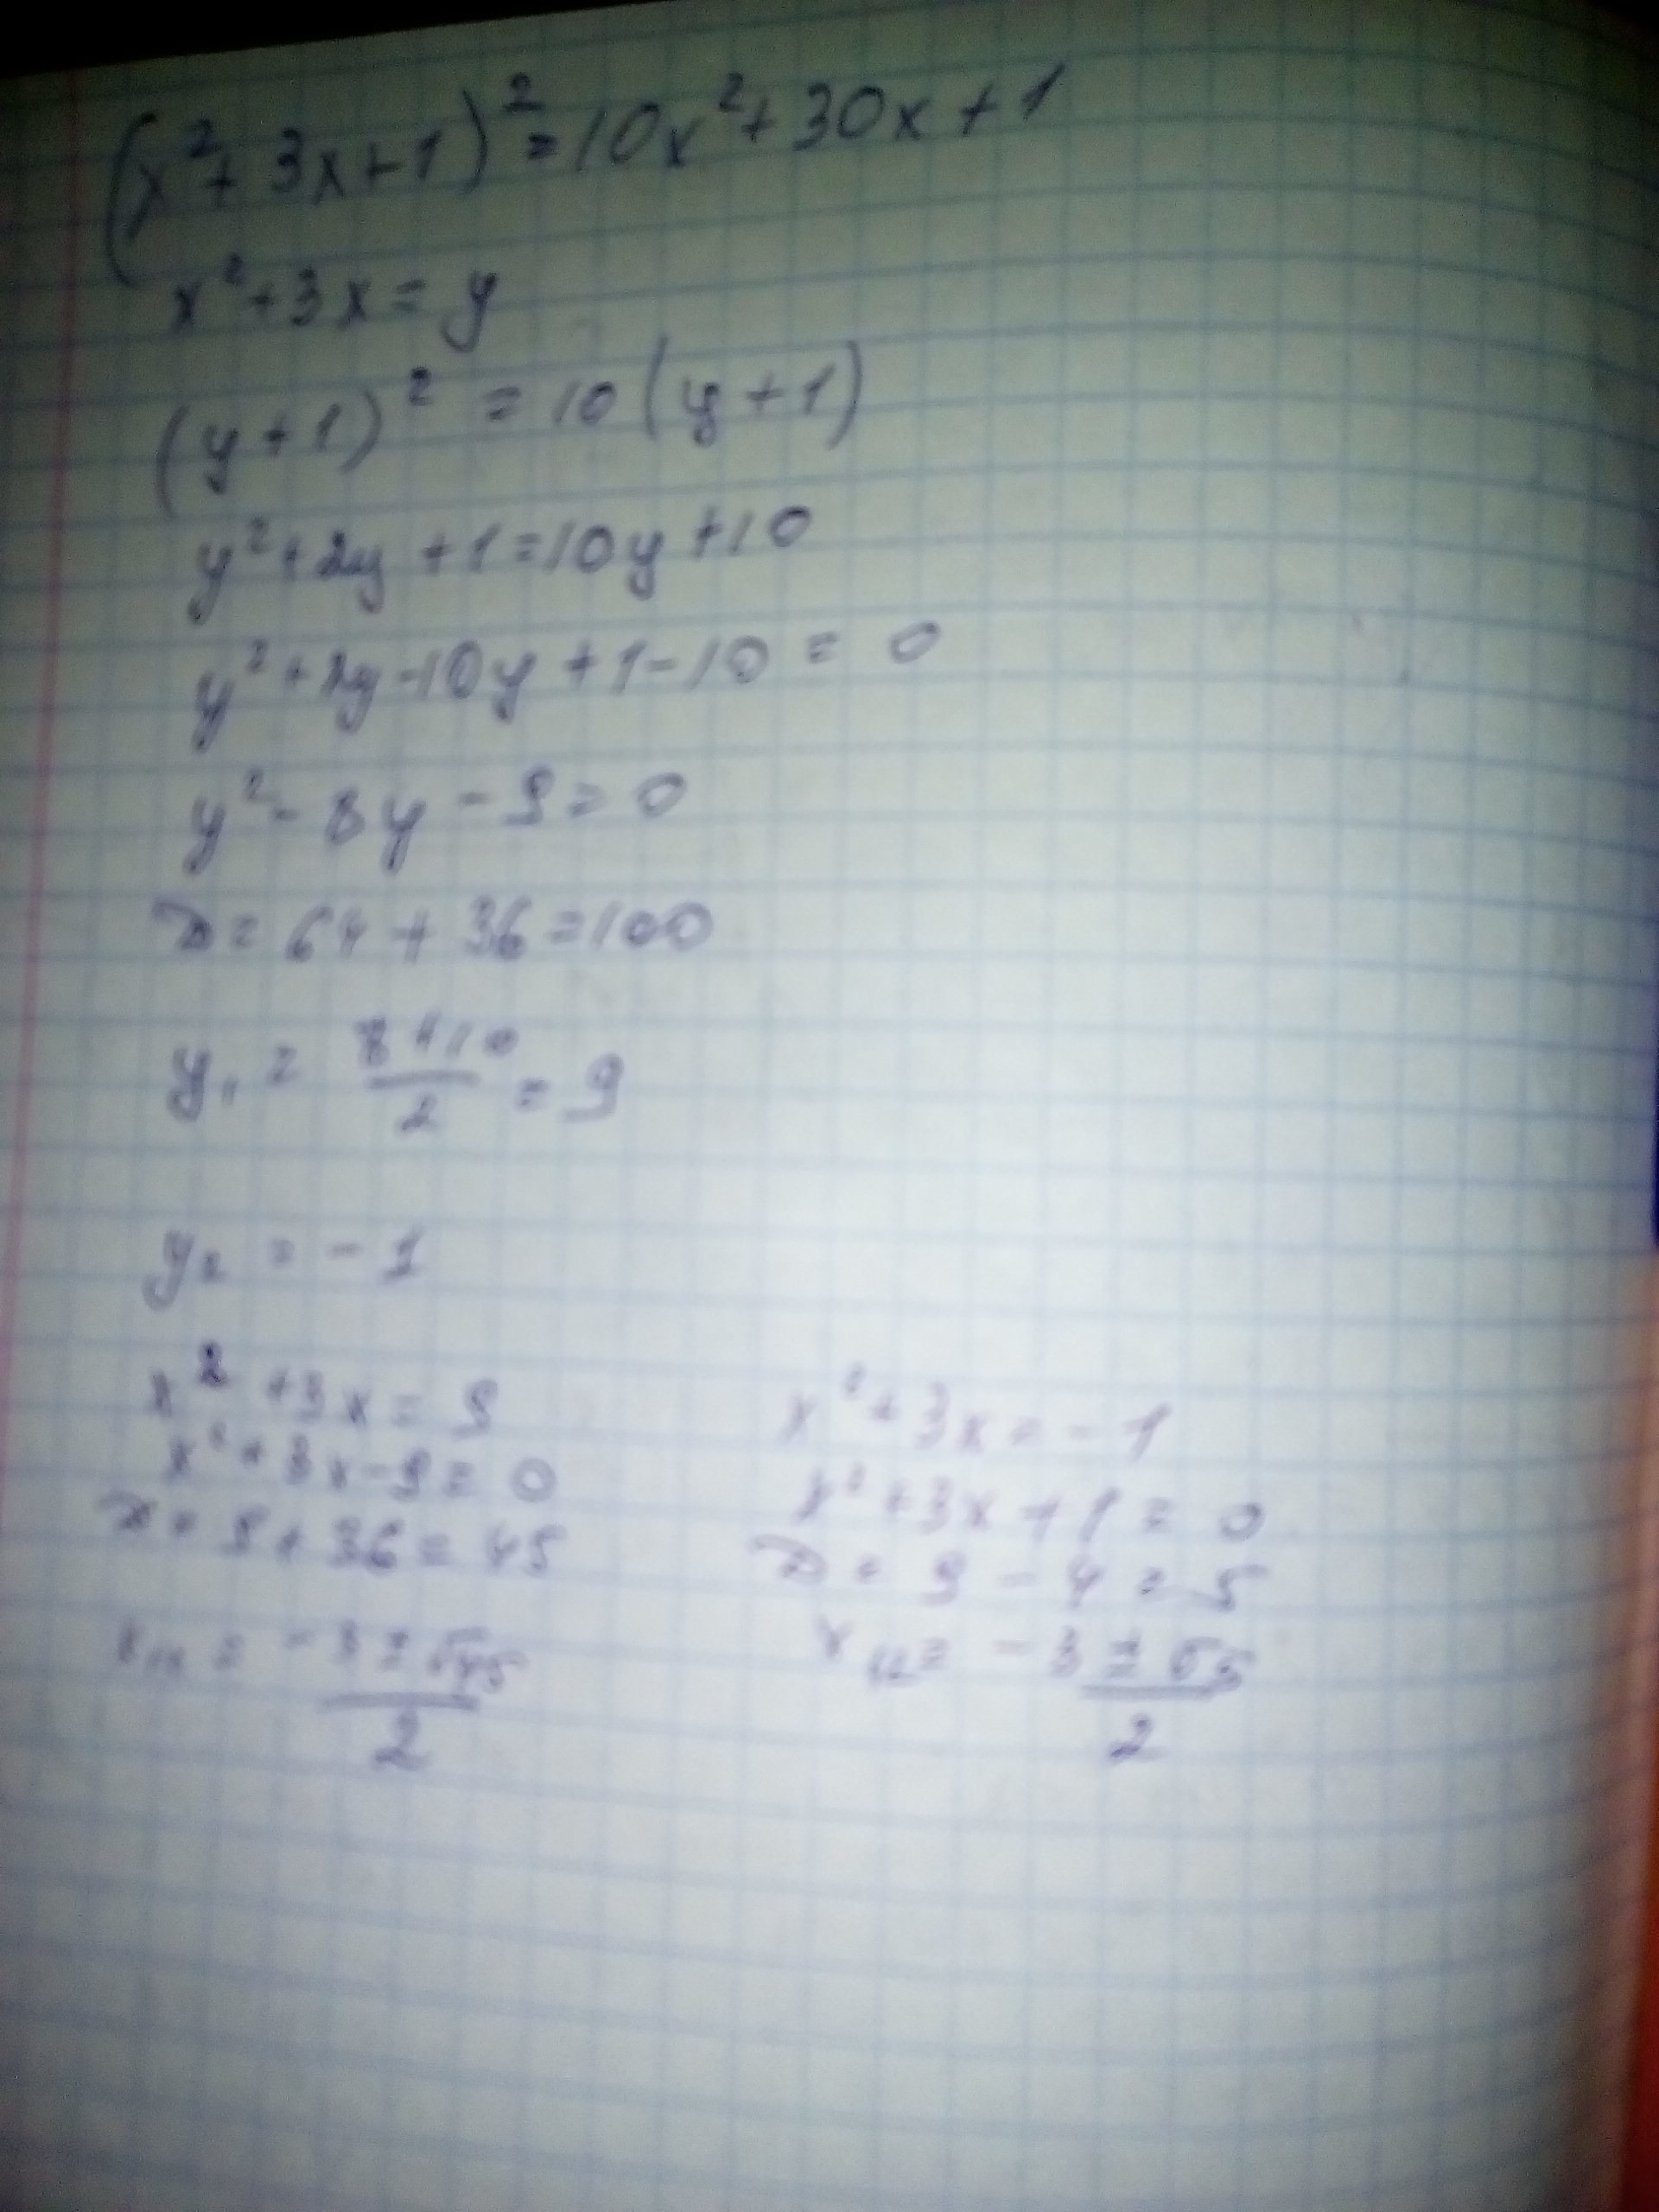 (x²+3x+1)²=10x²+30x+1
x²+3x=y
(y+1)²=10(y+1)
y²+2y+1=10y+10
y²+2y-10y+1-10=0
y²-8y-9=0
D=64+36=100
y₁=(8+10)/2=9
y₂=-1
x²+3x=9
x²+3x-9=0
D=9+36=45
x₁,₂=(-3±√45)/2
x²+3x=-1
x²+3x+1=0
D=9-4=5
x₁,₂=(-3±√5)/2